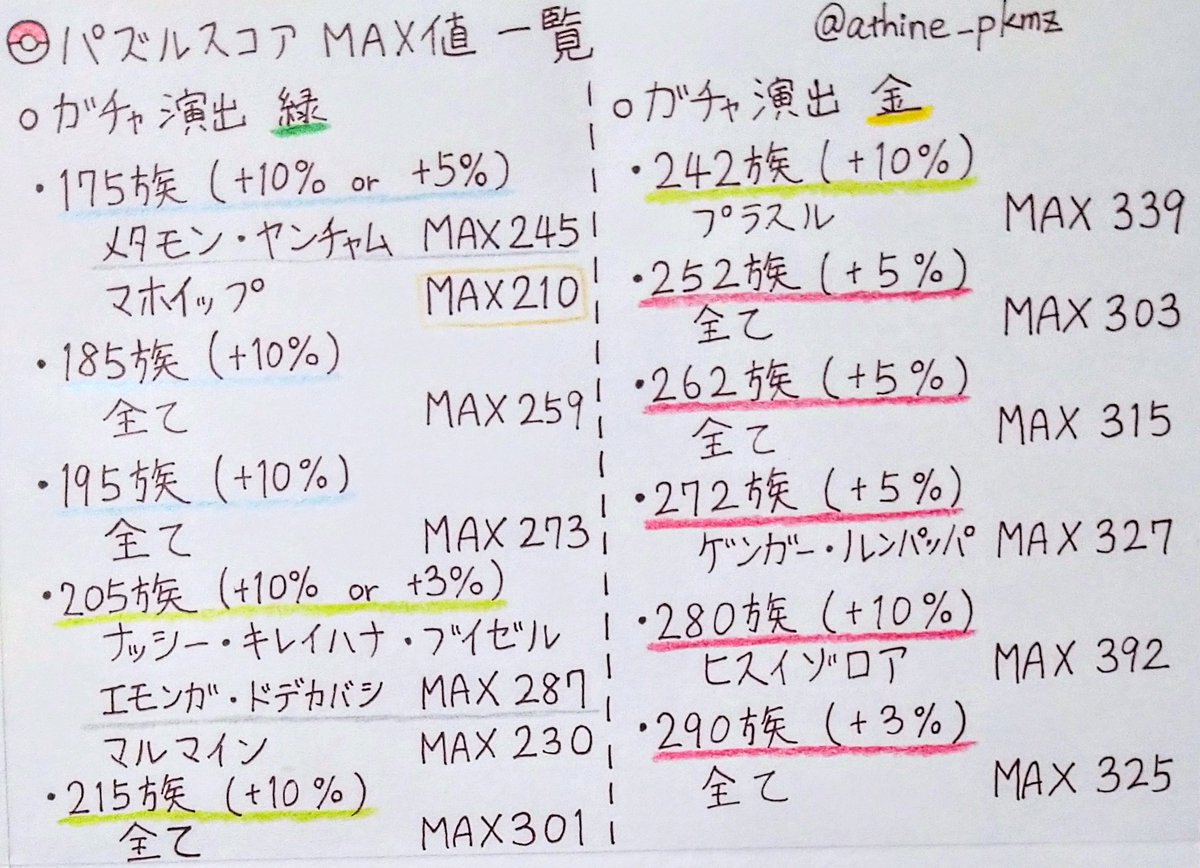 パズルスコア MAX値 一覧
@athine_pkmz
○ ガチャ演出 緑
・175族 (+10% or +5%)
メタモン・ヤンチャム MAX245
マホイップ MAX210
・185族 (+10%)
全て MAX259
・195族 (+10%)
全て MAX273
・205族 (+10% or +3%)
ナッシー・キレイハナ・ブイゼル
エモンガ・ドデカバシ MAX 287
マルマイン MAX 230
・215族 (+10%)
全て MAX301
○ ガチャ演出 金
・242族 (+10%)
プラスル MAX 339
・252族 (+5%)
全て MAX 303
・262族 (+5%)
全て MAX 315
・272族 (+5%)
ゲンガー・ルンパッパ MAX 327
・280族 (+10%)
ヒスイゾロア MAX 392
・290族 (+3%)
全て MAX 325